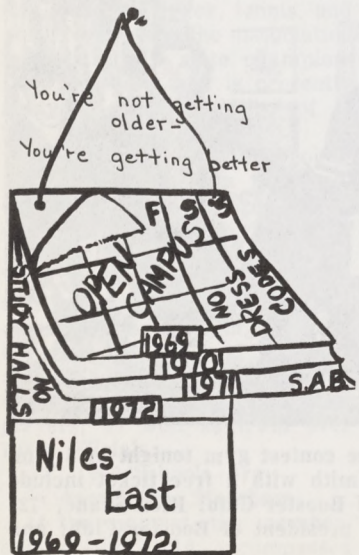 You're not getting
older-
You're getting better
F S S
OPEN
CAMPUS
NO
DRESS
CODES
NO
STUDY HALLS
1969
1970
1971
1972
S.A.B.
Niles
East
1969-1972